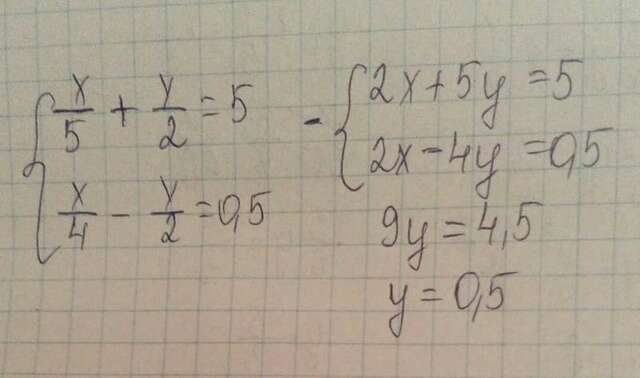 x/5 + y/2 = 5
x/4 - y/2 = 0,5
- 2x + 5y = 5
2x - 4y = 0,5
9y = 4,5
y = 0,5